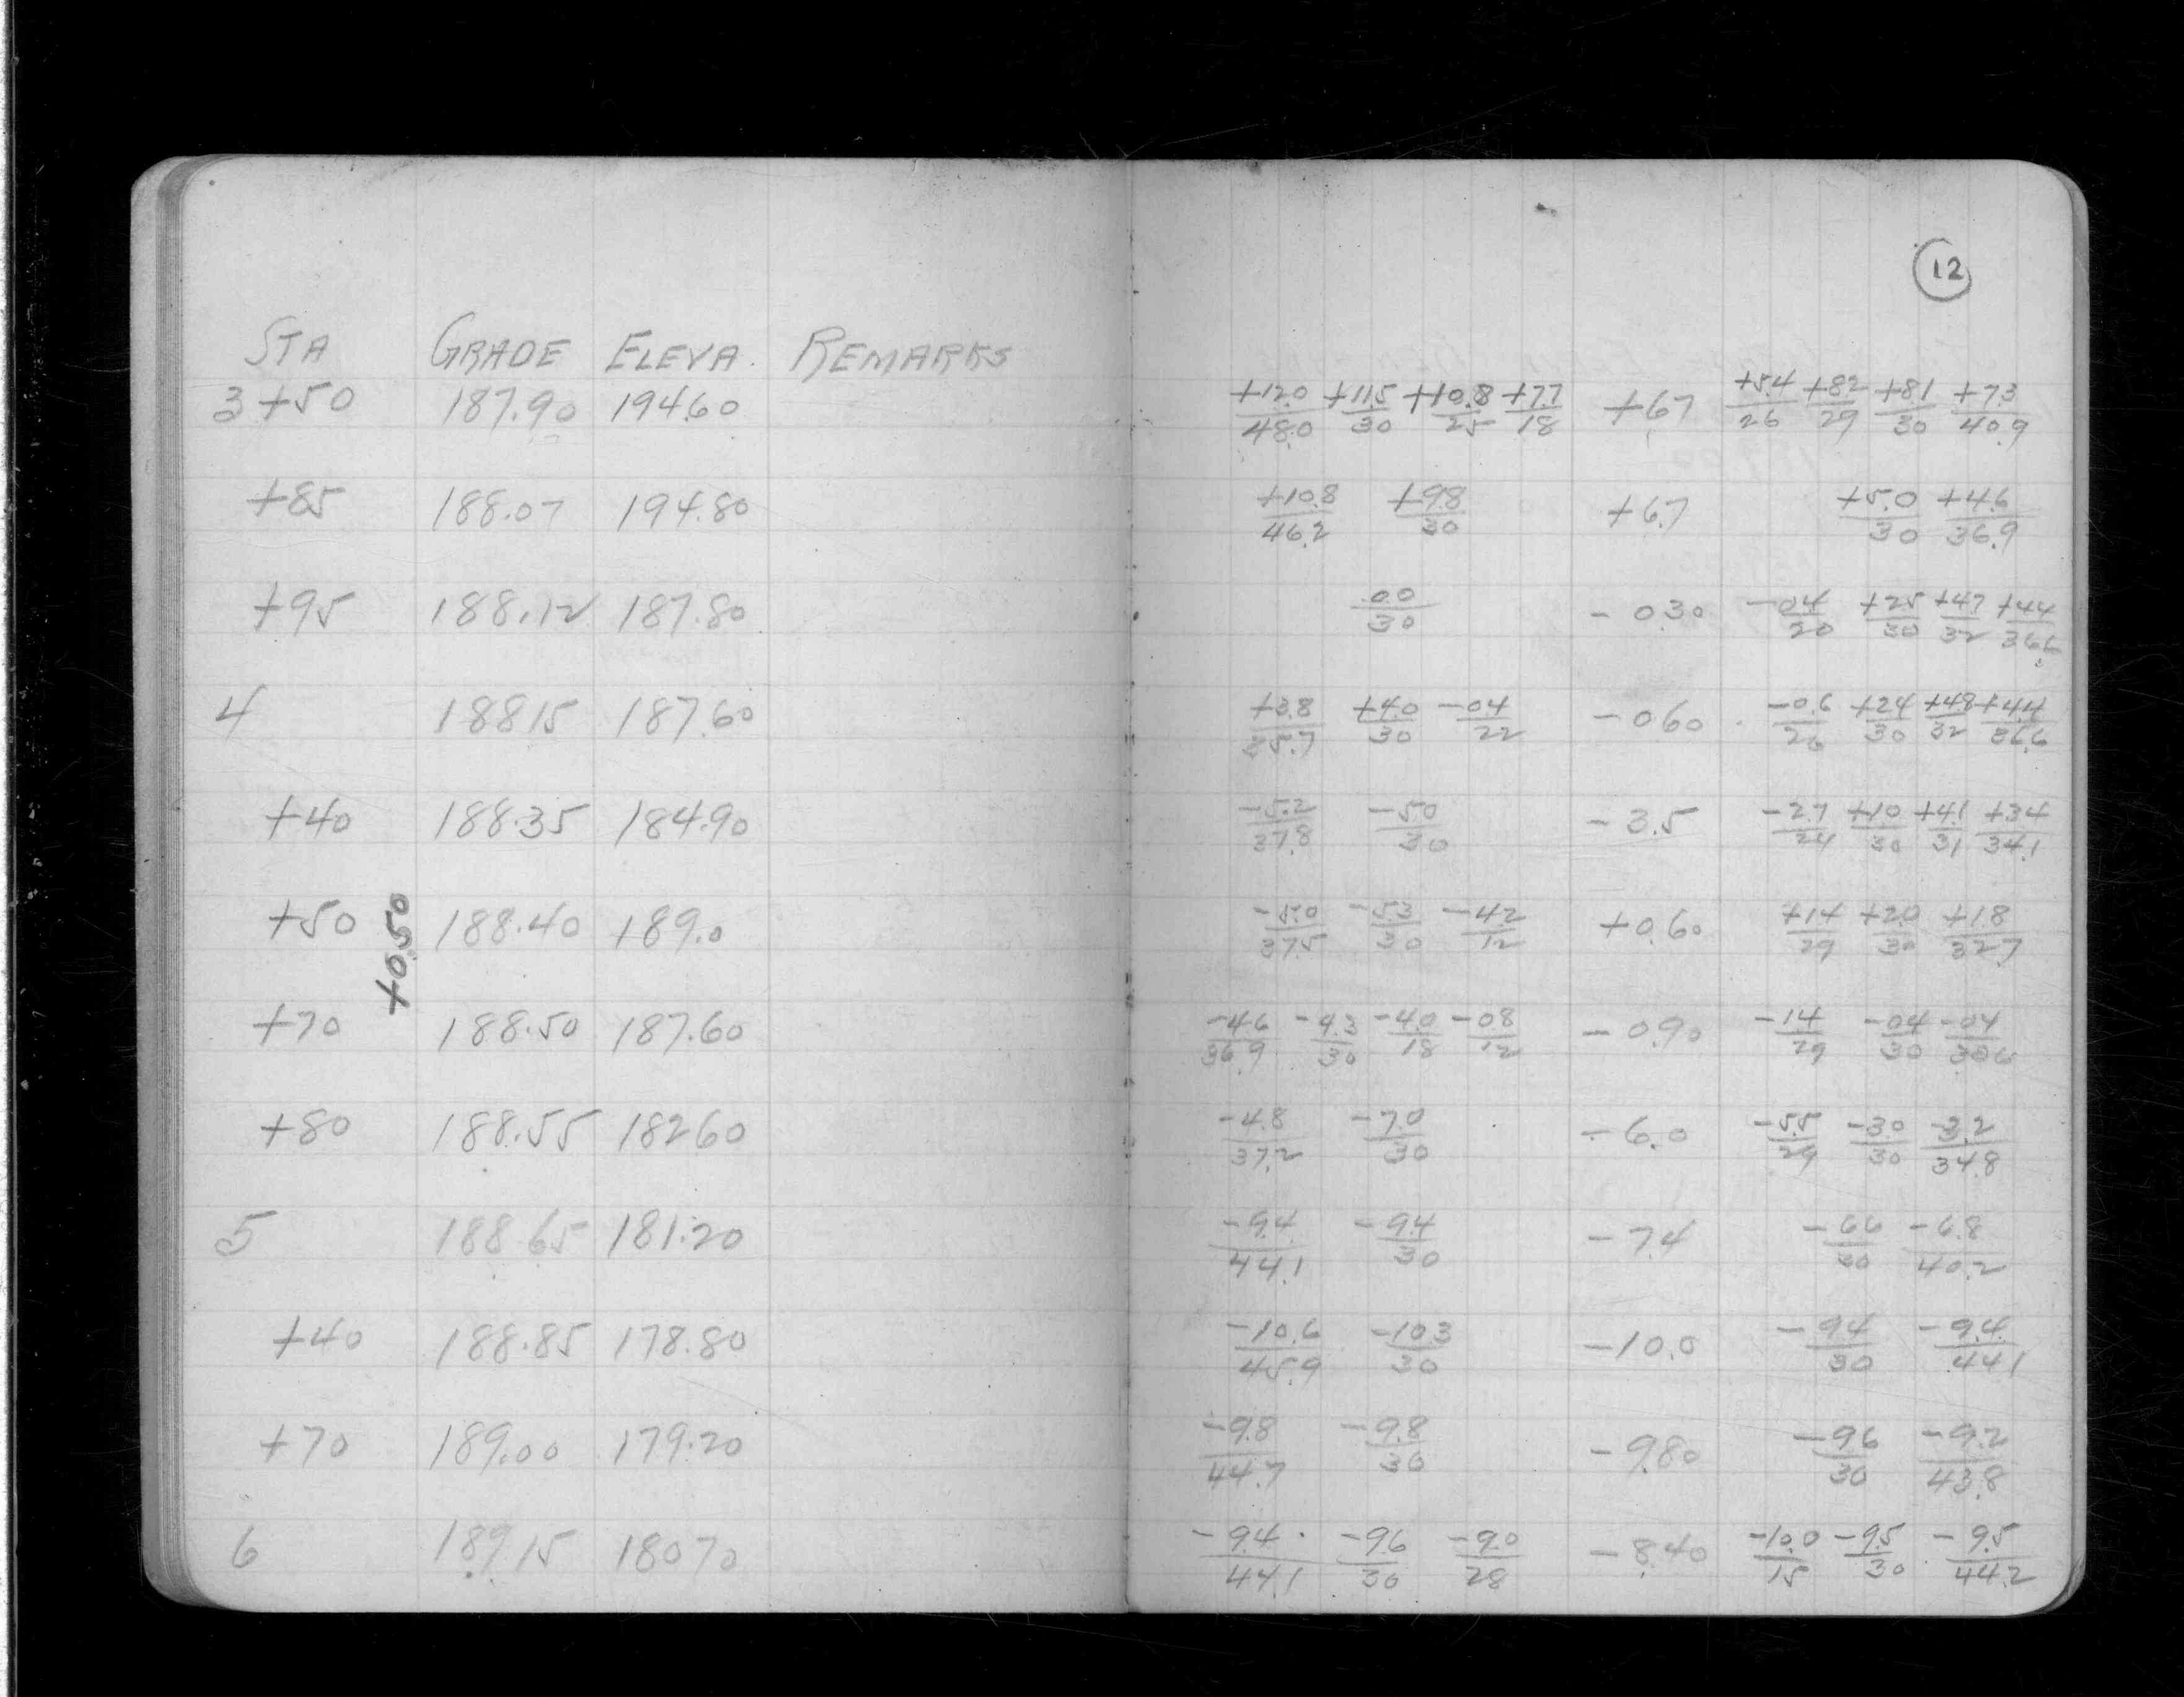 12
STA GRADE ELEVA. REMARKS
3+50 187.90 194.60 +12.0/48.0 +11.5/30 +10.8/25 +7.7/18 +6.7 +5.4/26 +8.2/29 +8.1/30 +7.3/40.9
+85 188.07 194.80 +10.8/46.2 +9.8/30 +6.7 +5.0/30 +4.6/36.9
+95 188.12 187.80 0.0/30 -0.30 -0.4/20 +2.5/30 +4.7/32 +4.4/36.6
4 188.15 187.60 +3.8/35.7 +4.0/30 -0.4/22 -0.60 -0.6/26 +2.4/30 +4.8/32 +4.4/36.6
+40 188.35 184.90 -5.2/37.8 -5.0/30 -3.5 -2.7/24 +1.0/30 +4.1/31 +3.4/34.1
+50 188.40 189.0 -5.0/37.5 -5.3/30 -4.2/12 +0.60 +1.4/29 +2.0/30 +1.8/32.7
+0.50
+70 188.50 187.60 -4.6/36.9 -4.3/30 -4.0/18 -0.8/12 -0.90 -1.4/29 -0.4/30 -0.4/30.6
+80 188.55 182.60 -4.8/37.2 -7.0/30 -6.0 -5.5/29 -3.0/30 -3.2/34.8
5 188.65 181.20 -9.4/44.1 -9.4/30 -7.4 -6.6/30 -6.8/40.2
+40 188.85 178.80 -10.6/45.9 -10.3/30 -10.0 -9.4/30 -9.4/44.1
+70 189.00 179.20 -9.8/44.7 -9.8/30 -9.80 -9.6/30 -9.2/43.8
6 189.15 180.70 -9.4/44.1 -9.6/30 -9.0/28 -8.40 -10.0/15 -9.5/30 -9.5/44.2